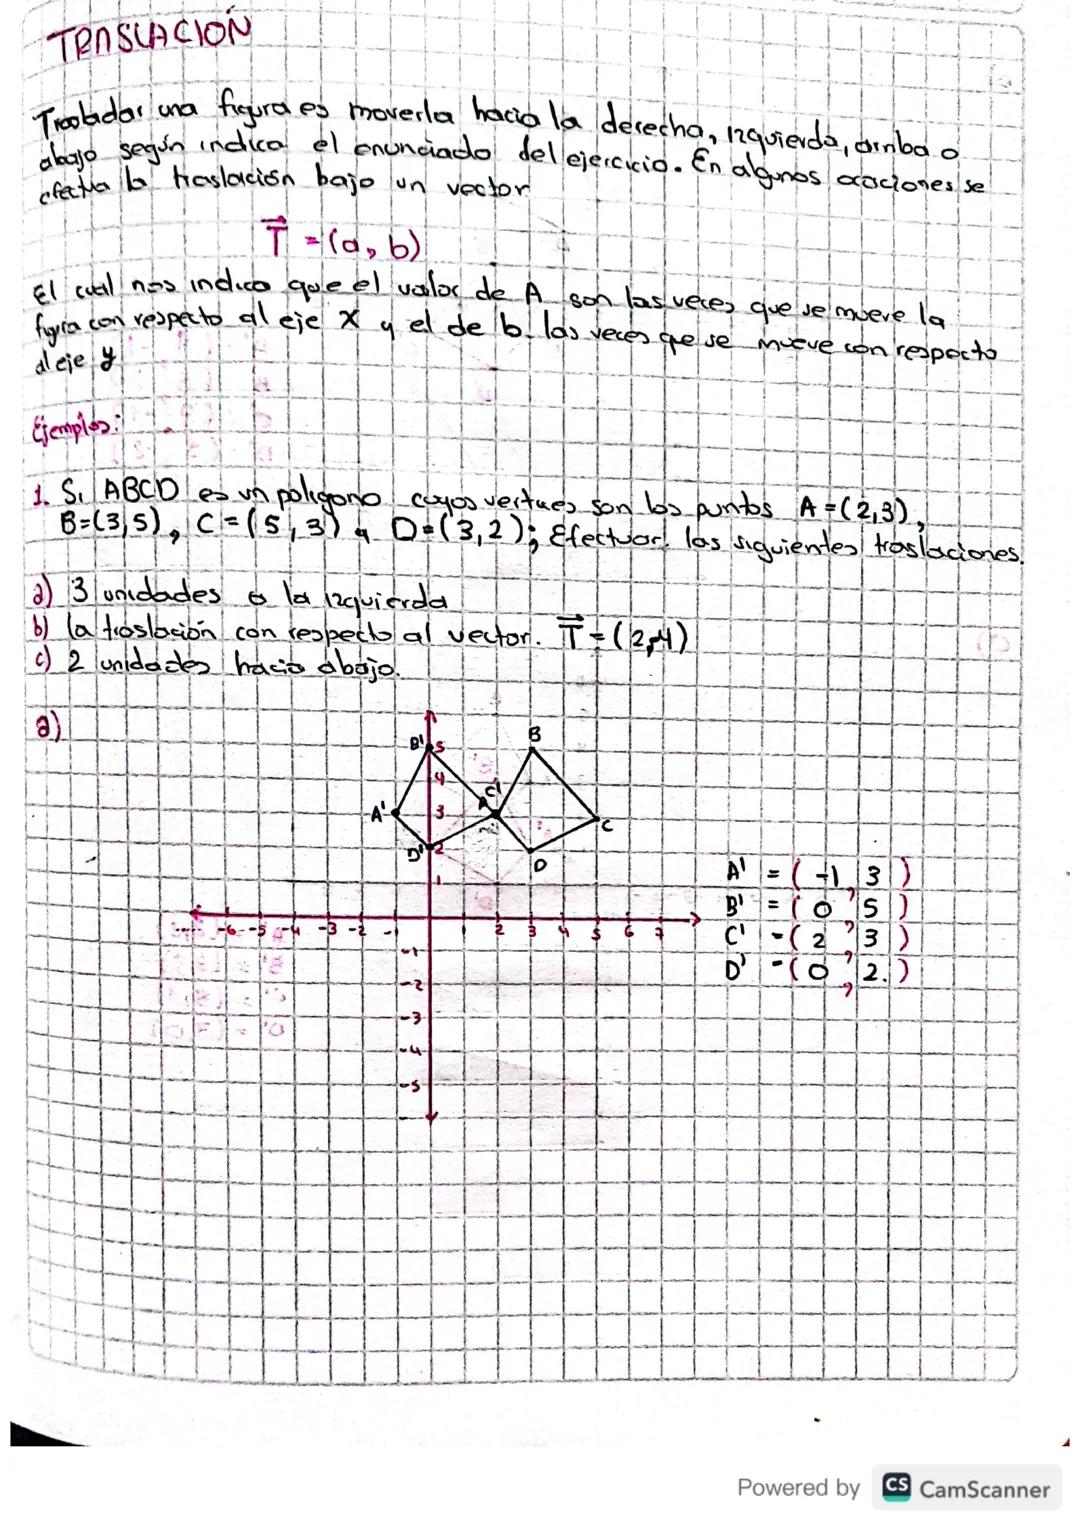 TRASLACION
Trasladar una figura es moverla hacia la derecha, izquierda, arriba o
abajo según indica el enunciado del ejercicio. En algunos ocaciones se
efectua la traslación bajo un vector
T = (a, b)
El cual nos indica que el valor de A son las veces que se mueve la
figura con respecto al eje X y el de b. las veces que se mueve con respecto
al eje y
Ejemplos:
1. Si ABCD es un poligono cuyos vertices son los puntos A = (2,3),
B=(3,5), C = (5,3) y D=(3,2); Efectuar: las siguientes traslaciones.
a) 3 unidades a la izquierda
b) la traslación con respecto al vector. T = (2,-4)
c) 2 unidades hacia abajo.
a)
B' 5 B
4
A' 3 A C' C
D' 2 D
1
-6 -5 -4 -3 -2 - 1 2 3 4 5 6 7
-1
-2
-3
-4
-5
A' = (-1, 3)
B' = (0, 5)
C' = (2, 3)
D' = (0, 2.)
Powered by CS CamScanner